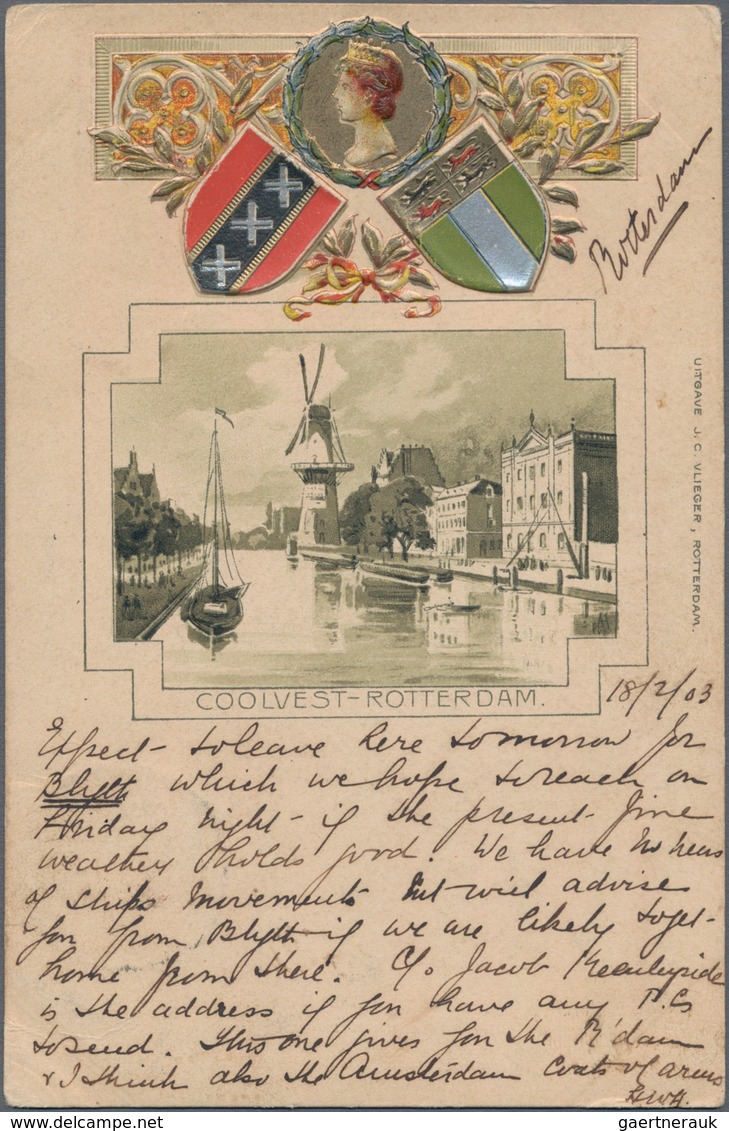 Rotterdam
UITGAVE J. C. VLIEGER, ROTTERDAM.
COOLVEST-ROTTERDAM.
18/2/03
Expect to leave here tomorrow for
Blyth which we hope to reach on
Friday night - if the present fine
weather holds good. We have no news
of ships movements but will advise
you from Blyth if we are likely to get
home from there. C/o Jacob
is the address if you have any P.Cs
to send. This one gives you the R'dam
& I think also the Amsterdam Coats of arms
HWH.
© gaertnerauk